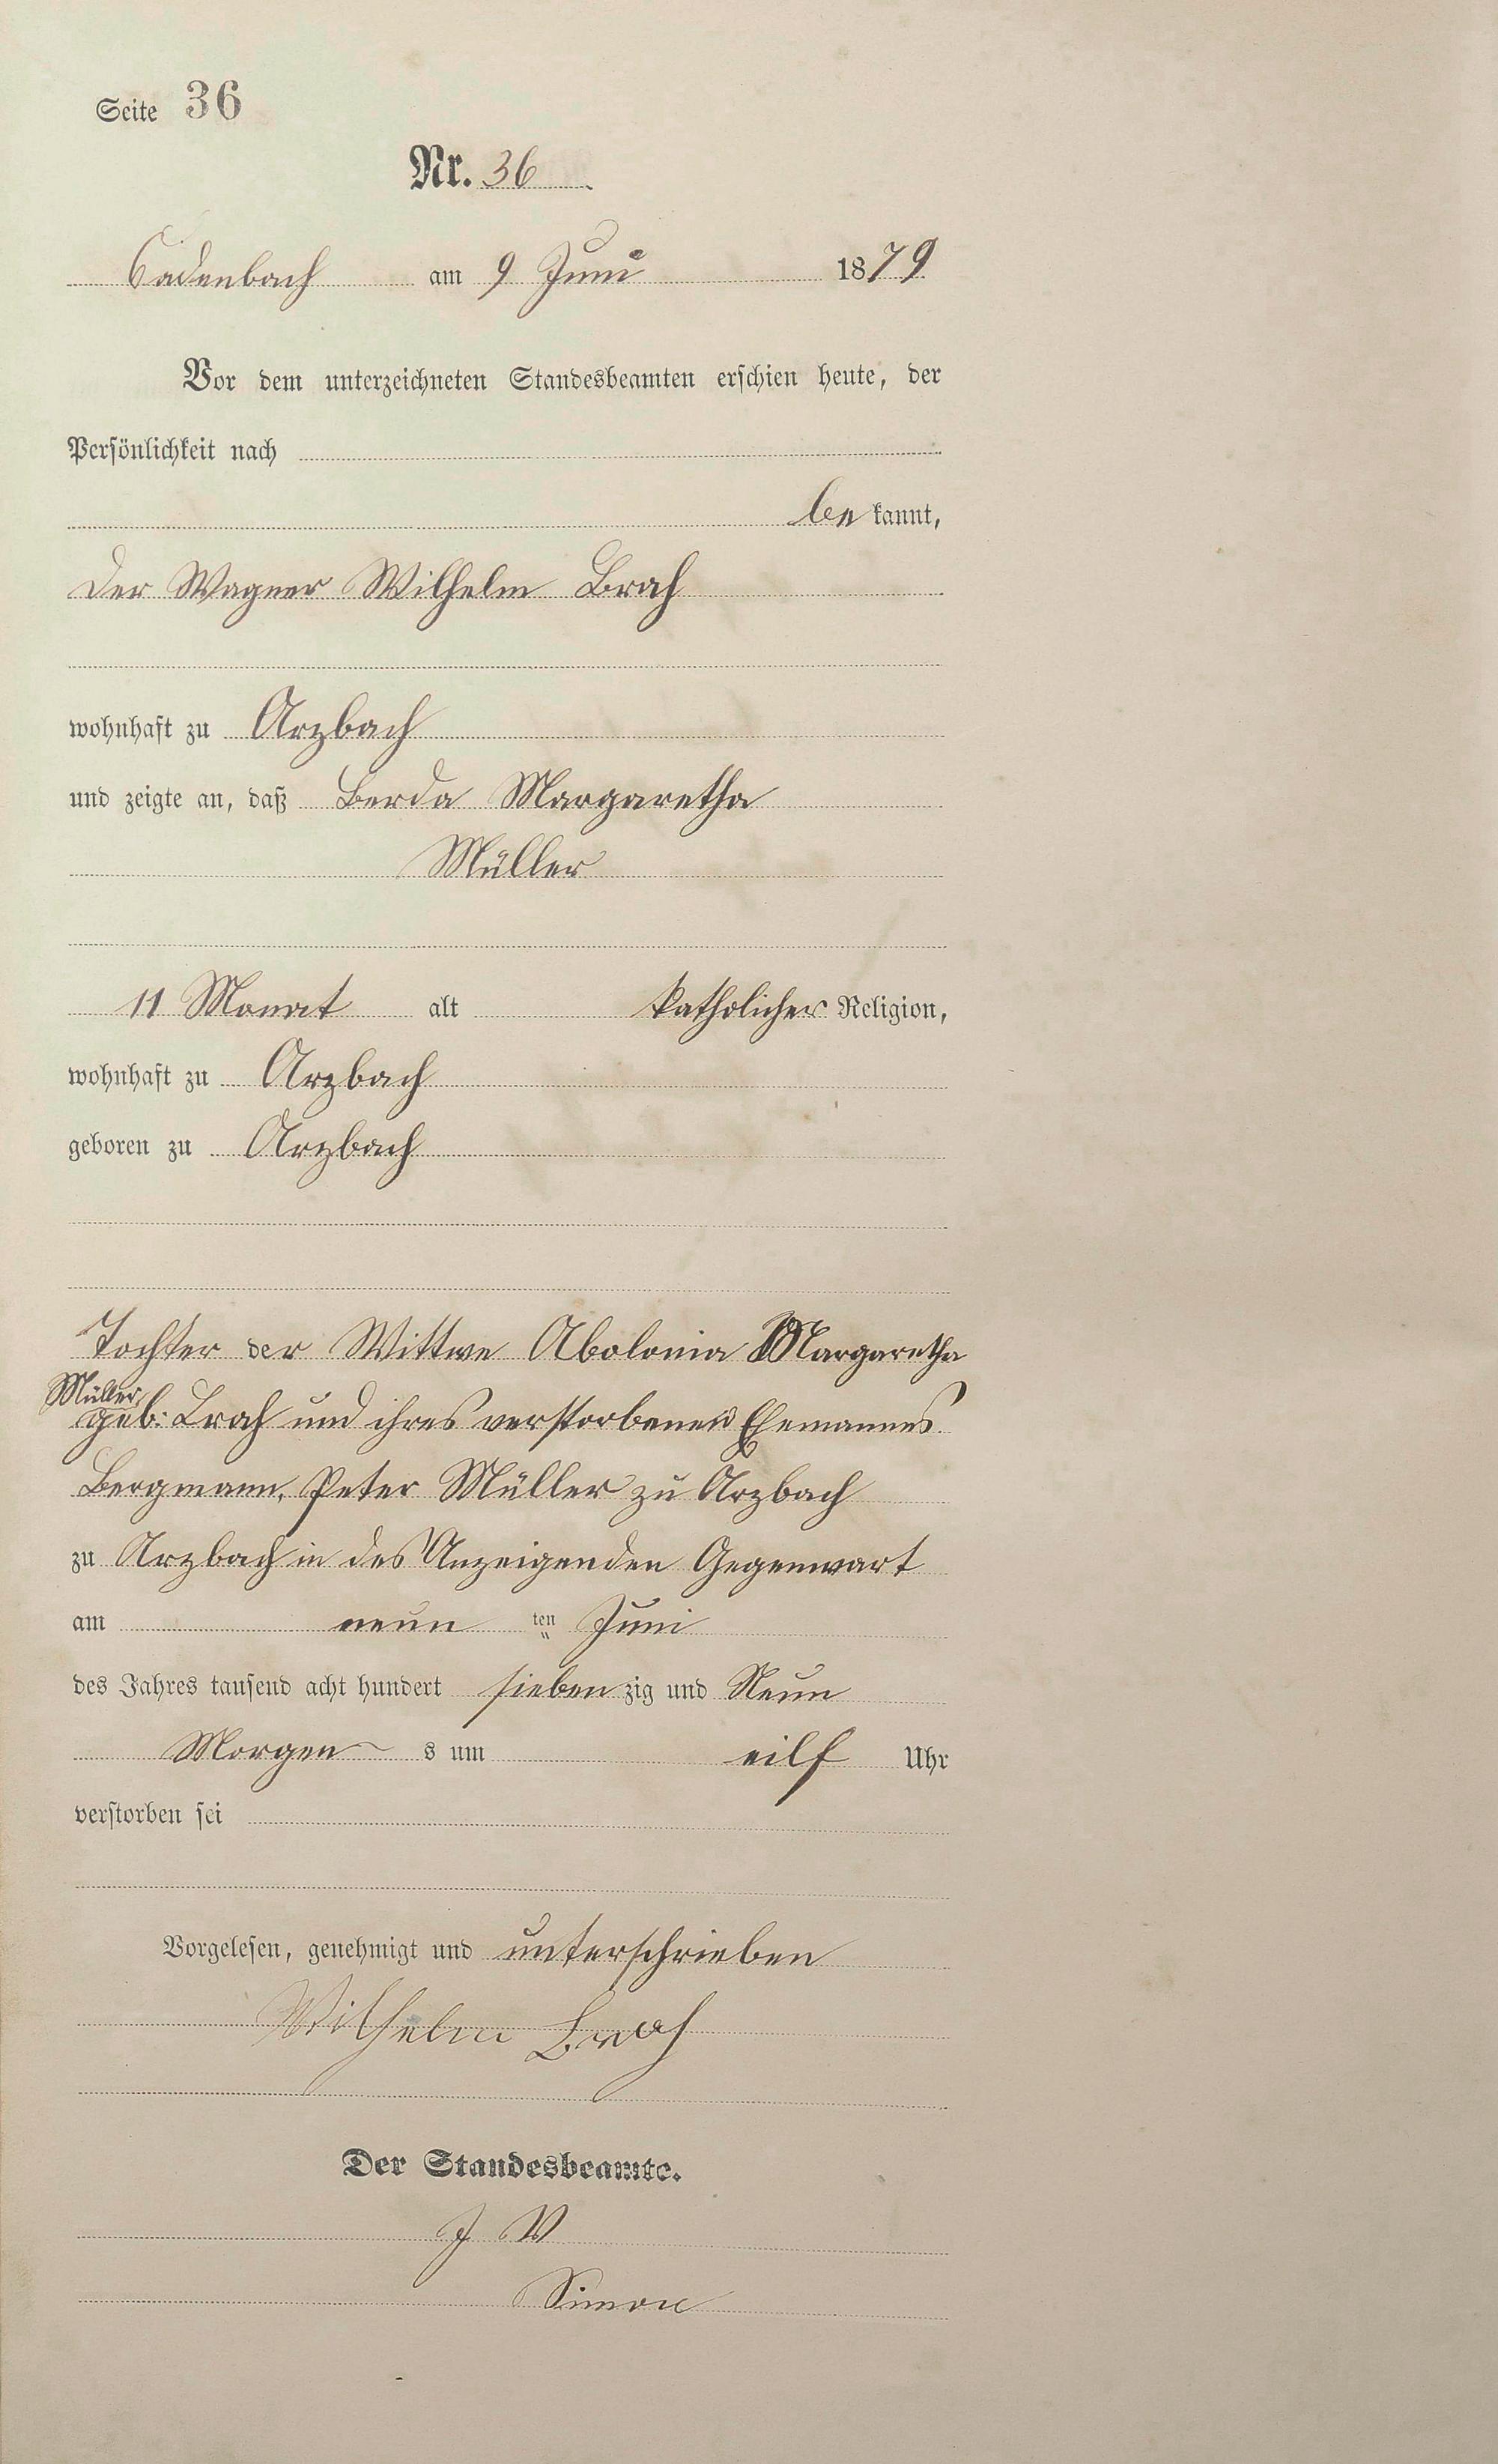 Seite 36
Nr. 36
Cadenbach am 9 Juni 1879
Vor dem unterzeichneten Standesbeamten erschien heute, der
Persönlichkeit nach
be kannt,
der Wagner Wilhelm Brah
wohnhaft zu Arzbach
und zeigte an, daß Berda Margaretha
Müller
11 Monat alt katholicher Religion,
wohnhaft zu Arzbach
geboren zu Arzbach
Tochter der Wittwe Abolonia Margaretha
Müller
geb. Brah und ihres verstorbenen Ehemannes
Bergmann, Peter Müller zu Arzbach
zu Arzbach in des Anzeigenden Gegenwart
am neun ten Juni
des Jahres tausend acht hundert sieben zig und Neun
Morgen s um eilf Uhr
verstorben sei
Vorgelesen, genehmigt und unterschrieben
Wilhelm Brah
Der Standesbeamte.
J V
Simon